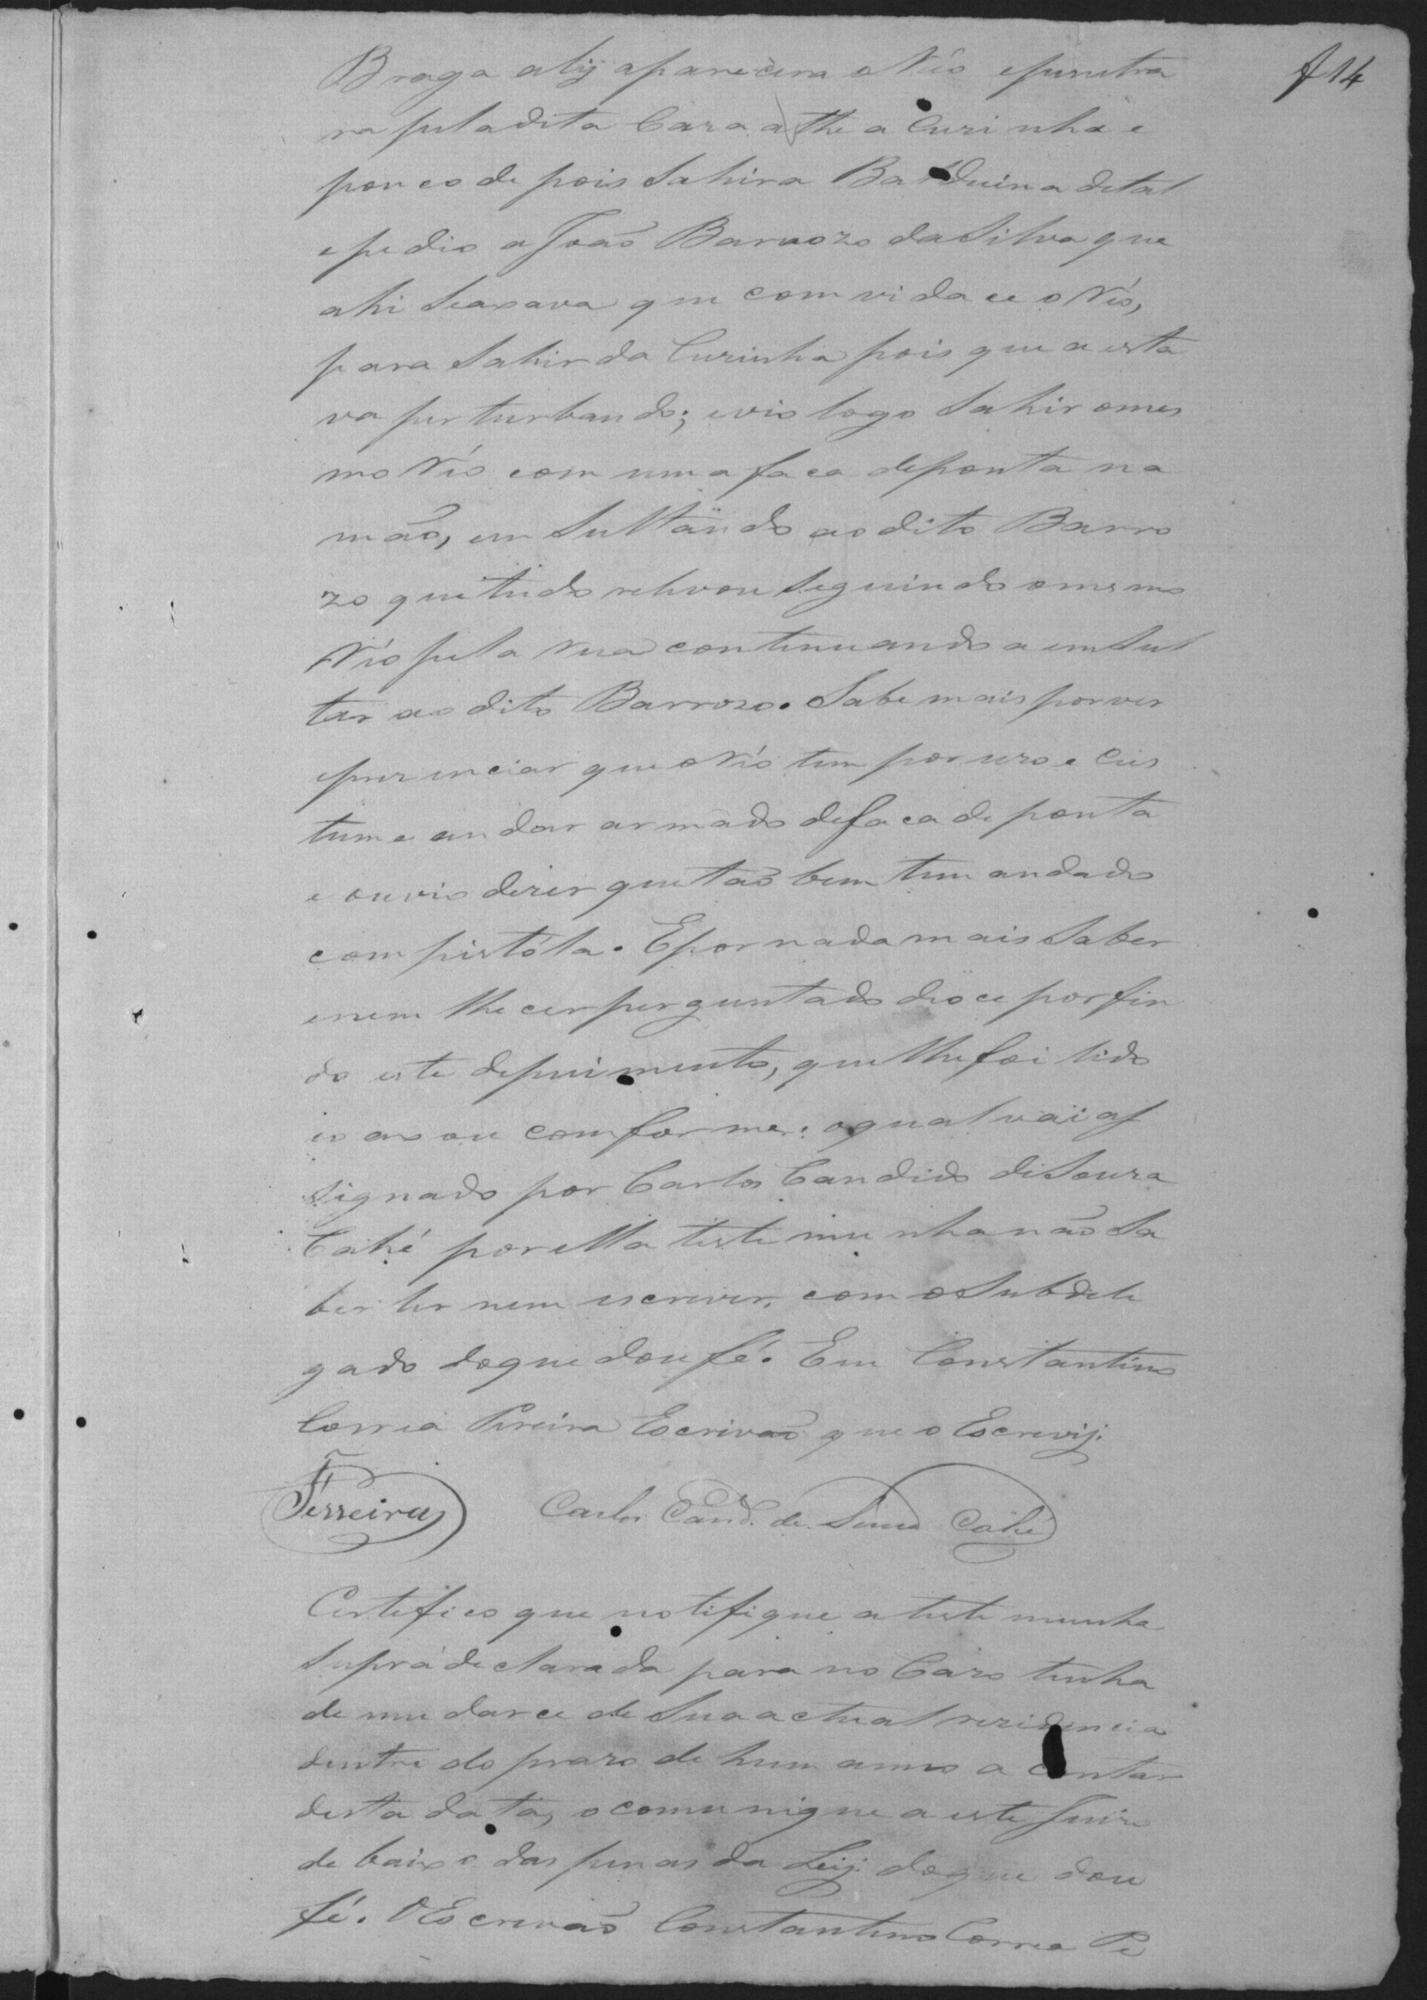 f 14
Braga alij aparecera o Réo e penetra
ra pela dita Caza athe a Cuzinha e
pouco depois Sahira Balduina de tal
e pedio a João Barrozo da Silva que
ahi Seaxava que comvidace o Réo,
para Sahir da Cuzinha pois que a esta
va perturbando; evio logo Sahir o mes
mo Réo com uma faca de ponta na
mão, em Sultando ao dito Barro
zo que tudo relevou Seguindo o mesmo
Réo pela rua continuando a em Sul
tar ao dito Barrozo. Sabe mais por ver
eprezenciar que o Réo tem por uzo e Cus
tume andar armado de faca de ponta
e ouvio dezer que tão bem tem andado
com pistóla. E por nada mais Saber
enem lhe cer perguntado deo ce por fin
do este depuimento, que lhe foi lido
e axou comforme: o qual vai as
signado por Carlos Candido de Souza
Cahé por ella testemunha não Sa
ber ler nem escrever, com o Subdele
gado do que dou fé. Eu Constantino
Correa Pereira Escrivão que o Escrevij.
Ferreira Carlos Cand. de Souza Cahé
Certefico que notifique a testemunha
Supra declarada para no Cazo tenha
de mudarce de Sua actual rezidencia
dentro do prazo de hum anno a contar
desta data, o comunique a este Juizo
de baixo das penas da Leij. do que dou
fé. O Escrivão Constantino Correa Pe